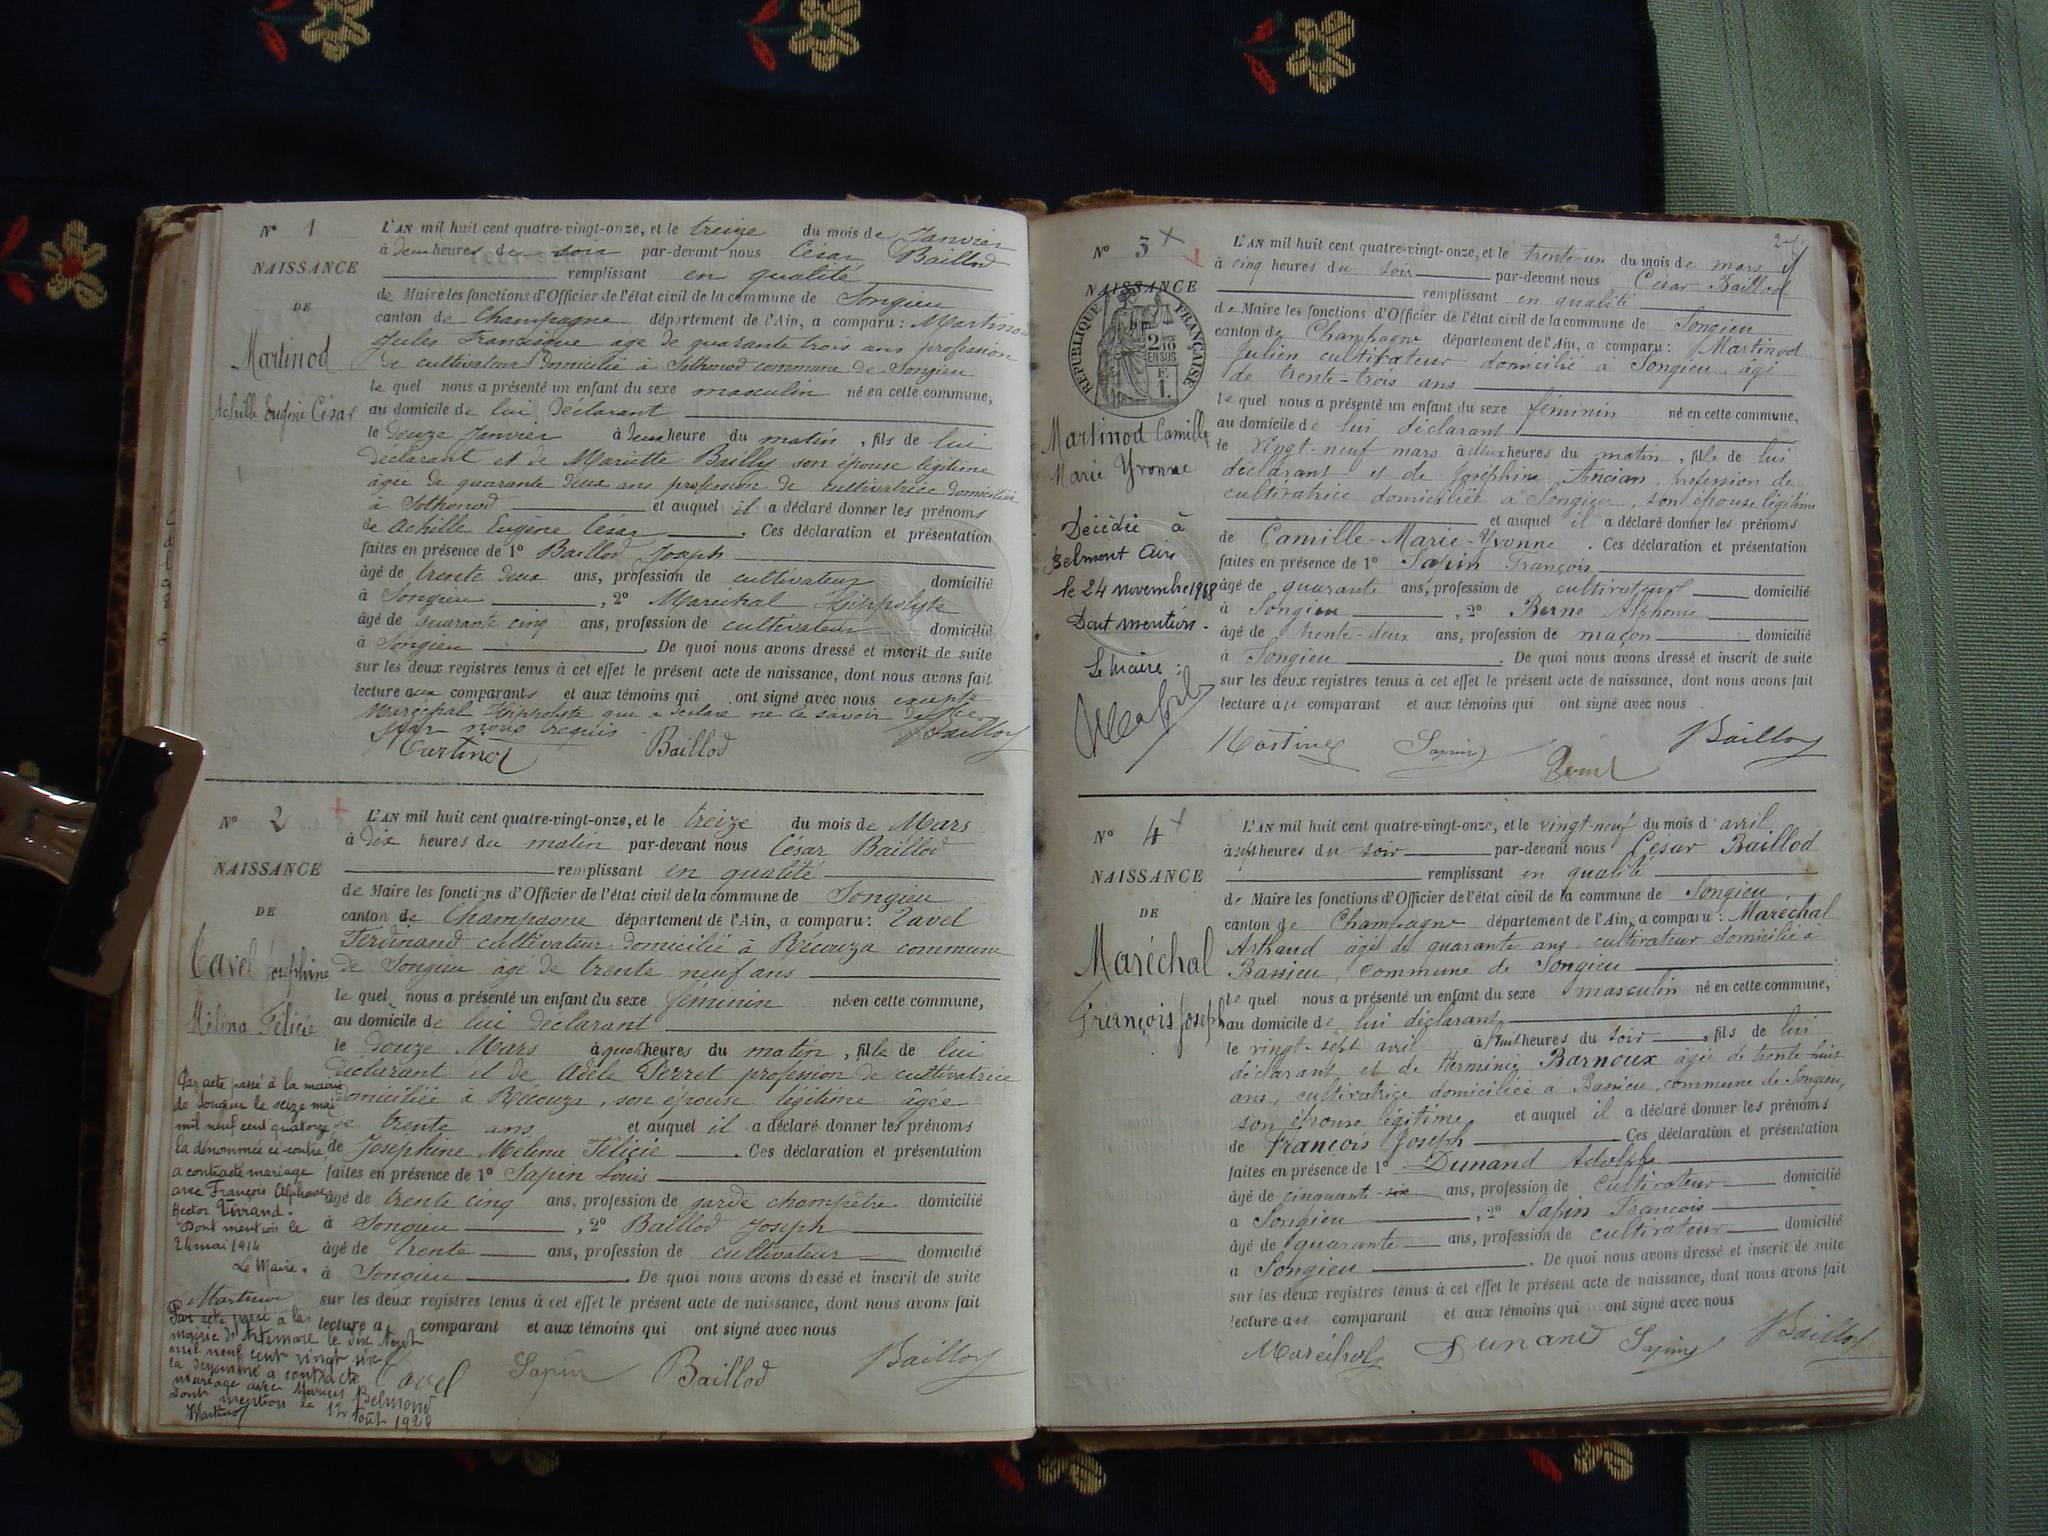 N° 1
NAISSANCE
DE
Martinod
Achille Eugène César
L'AN mil huit cent quatre-vingt-onze, et le treize du mois de Janvier
à deux heures du soir par-devant nous César Baillod
remplissant en qualité
de Maire les fonctions d'Officier de l'état civil de la commune de Songieu
canton de Champagne département de l'Ain, a comparu : Martinod
Jules Francisque âgé de quarante trois ans profession
de cultivateur domicilié à Sothonod commune de Songieu
le quel nous a présenté un enfant du sexe masculin né en cette commune,
au domicile de lui déclarant
le douze Janvier à deux heure du matin, fils de lui
déclarant et de Mariette Bailly son épouse légitime
âgée de quarante deux ans profession de cultivatrice domiciliée
à Sothonod et auquel il a déclaré donner les prénoms
de Achille Eugène César. Ces déclaration et présentation
faites en présence de 1° Baillod Joseph
âgé de trente deux ans, profession de cultivateur domicilié
à Songieu, 2° Maréchal Hippolyte
âgé de quarante cinq ans, profession de cultivateur domicilié
à Songieu. De quoi nous avons dressé et inscrit de suite
sur les deux registres tenus à cet effet le présent acte de naissance, dont nous avons fait
lecture aux comparants et aux témoins qui ont signé avec nous excepté
Maréchal Hippolyte qui a déclaré ne le savoir de ce
par nous requis
Martinod Baillod Baillod
N° 2
NAISSANCE
DE
Tavel Joséphine
Mélina Félicie
L'AN mil huit cent quatre-vingt-onze, et le treize du mois de Mars
à dix heures du matin par-devant nous César Baillod
remplissant en qualité
de Maire les fonctions d'Officier de l'état civil de la commune de Songieu
canton de Champagne département de l'Ain, a comparu : Tavel
Ferdinand cultivateur domicilié à Bécouza commune
de Songieu âgé de trente neuf ans
le quel nous a présenté un enfant du sexe féminin née en cette commune,
au domicile de lui déclarant
le douze Mars à quatre heures du matin, fille de lui
déclarant et de Adèle Perret profession de cultivatrice
domiciliée à Bécouza, son épouse légitime âgée
de trente ans et auquel il a déclaré donner les prénoms
de Joséphine Mélina Félicie. Ces déclaration et présentation
faites en présence de 1° Sapin Louis
âgé de trente cinq ans, profession de garde champêtre domicilié
à Songieu, 2° Baillod Joseph
âgé de trente ans, profession de cultivateur domicilié
à Songieu. De quoi nous avons dressé et inscrit de suite
sur les deux registres tenus à cet effet le présent acte de naissance, dont nous avons fait
lecture au comparant et aux témoins qui ont signé avec nous
Tavel Sapin Baillod Baillod
Par acte passé à la mairie
de Songieu le seize mai
mil neuf cent quatorze
la dénommée ci-contre
a contracté mariage
avec François Alphonse
Hector Tivrand.
Dont mention le
24 mai 1914
Le Maire.
Martinod
Par acte passé à la
mairie d'Artemare le dix Août
mil neuf cent vingt six
la dénommée a contracté
mariage avec Marius Belmond
Dont mention le 12 Août 1928
Martinod
N° 3
NAISSANCE
RÉPUBLIQUE FRANÇAISE
2 DES 10 EN SUS
Martinod Camille
Marie Yvonne
Décédée à
Belmont Ain
le 24 novembre 1968
Dont mention.
Le Maire :
L'AN mil huit cent quatre-vingt-onze, et le trente-un du mois de mars
à cinq heures du soir par-devant nous César Baillod
remplissant en qualité
de Maire les fonctions d'Officier de l'état civil de la commune de Songieu
canton de Champagne département de l'Ain, a comparu : Martinod
Julien cultivateur domicilié à Songieu âgé
de trente-trois ans
le quel nous a présenté un enfant du sexe féminin né en cette commune,
au domicile de lui déclarant
le vingt-neuf mars à deux heures du matin, fille de lui
déclarant et de Joséphine Ancian profession de
cultivatrice domiciliée à Songieu, son épouse légitime
et auquel il a déclaré donner les prénoms
de Camille-Marie-Yvonne. Ces déclaration et présentation
faites en présence de 1° Sapin François
âgé de quarante ans, profession de cultivateur domicilié
à Songieu, 2° Berne Alphonse
âgé de trente-deux ans, profession de maçon domicilié
à Songieu. De quoi nous avons dressé et inscrit de suite
sur les deux registres tenus à cet effet le présent acte de naissance, dont nous avons fait
lecture au comparant et aux témoins qui ont signé avec nous
Martinod Sapin Baillod
N° 4
NAISSANCE
DE
Maréchal
François Joseph
L'AN mil huit cent quatre-vingt-onze, et le vingt-neuf du mois d'avril
à sept heures du soir par-devant nous César Baillod
remplissant en qualité
de Maire les fonctions d'Officier de l'état civil de la commune de Songieu
canton de Champagne département de l'Ain, a comparu : Maréchal
Arthaud âgé de quarante ans, cultivateur domicilié à
Bassieu, commune de Songieu
le quel nous a présenté un enfant du sexe masculin né en cette commune,
au domicile de lui déclarant
le vingt-sept avril à huit heures du soir, fils de lui
déclarant et de Herminie Barnoux âgée de trente-huit
ans, cultivatrice domiciliée à Bassieu, commune de Songieu,
son épouse légitime et auquel il a déclaré donner les prénoms
de François Joseph Ces déclaration et présentation
faites en présence de 1° Dunand Adolphe
âgé de cinquante-six ans, profession de cultivateur domicilié
à Songieu, 2° Sapin François
âgé de quarante ans, profession de cultivateur domicilié
à Songieu. De quoi nous avons dressé et inscrit de suite
sur les deux registres tenus à cet effet le présent acte de naissance, dont nous avons fait
lecture au comparant et aux témoins qui ont signé avec nous
Maréchal Dunand Sapin Baillod